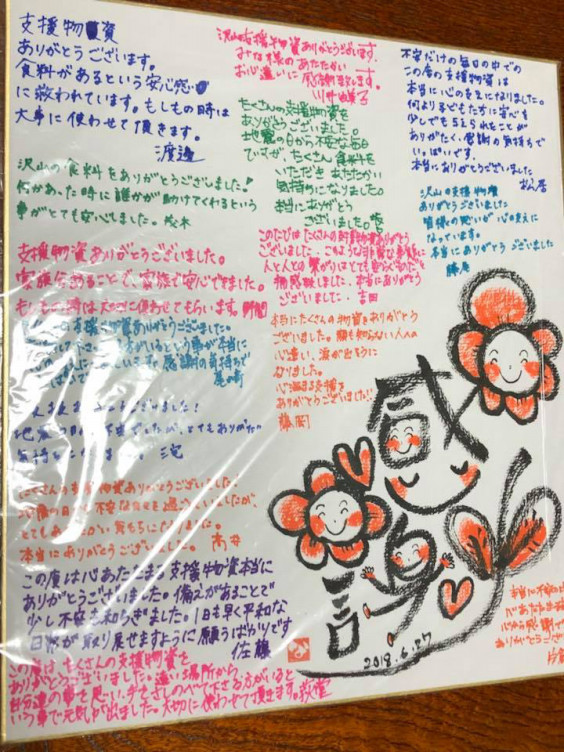 支援物資
ありがとうございます。
食料があるという安心感
に救われています。もしもの時は
大事に使わせて頂きます。
渡邉
沢山の食料をありがとうございました!
何かあった時に誰かが助けてくれるという
事がとても安心しました。
支援物資ありがとうございました。
家族分あることで、家族で安心できました。
もしもの時は大切に使わせてもらいます。
支援物資ありがとうございました。
という事が本当に
感謝の気持ちで
ございました!
三宅
たくさんの支援物資ありがとうございました。
不安な毎日を過ごしていましたが、
とてもあたたかい気もちになりました。
本当にありがとうございました。 高井
この度は心あたたまる支援物資本当に
ありがとうございました。備えがあることで
少し不安も和らぎました。1日も早く平和な
日常が取り戻せますように願うばかりです
佐藤
この度は、たくさんの支援物資を
ありがとうございました。遠い場所から
手をさしのべて下さる方がいると
いう事で元気が出ました。大切に使わせて頂きます。
沢山支援物資ありがとうございます。
みな様のあたたかい
お心遣いに感謝致します。
たくさんの支援物資を
ありがとうございました。
地震の日から不安な毎日
ですが、たくさん食料を
いただきあたたかい
気持ちになりました。
本当にありがとう
ございました。
このたびはたくさんの
ありがとう
ございました。このような非常な事態に
人と人との繋がりはとても
本当にありがとう
ございました。吉田
本当にたくさんの物資をありがとう
ございました。顔も知らない人への
心遣い、涙が出そうに
なりました。
心温まる支援を
ありがとうございました!!
藤岡
不安だけの毎日の中での
この度の支援物資は
本当に心の支えになりました。
何より子どもたちに安心を
少しでも与えられることが
ありがたく、感謝の気持ちで
いっぱいです。
本当にありがとうございました
沢山の支援物資
ありがとうございました
皆様の思いが心の支えに
なっています。
本当にありがとうございました
感謝
2018.6.27